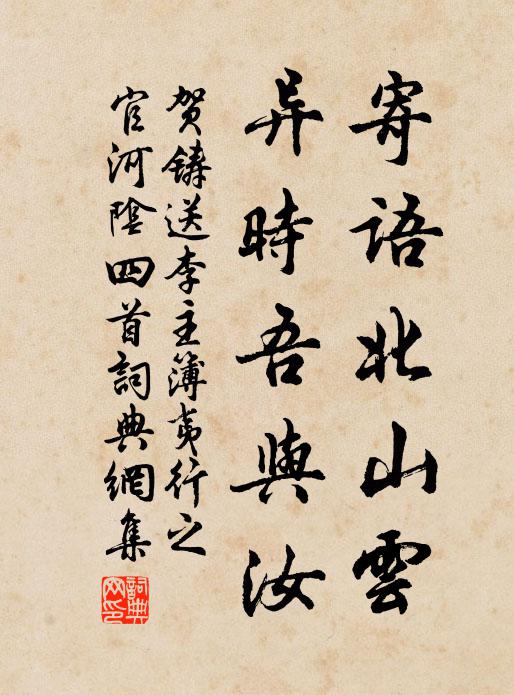 寄語北山雲
异時吾與汝
賀鑄送李主簿夷行之
官河陰四首詞典網集
詞典網印